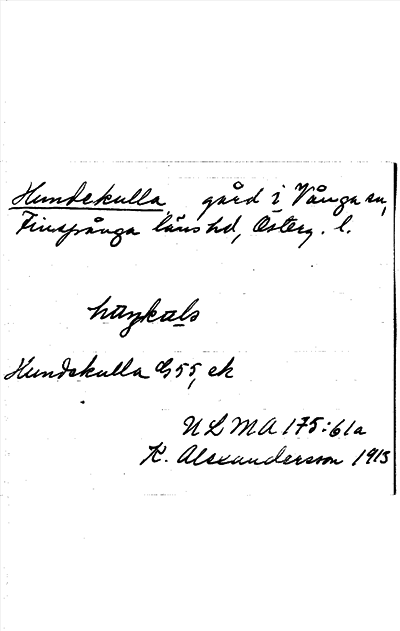 Hundekulla, gård i Vånga sn,
Finspånga läns hd, Österg. l.
Hundskulla G55, ek
ULMA 175:61a
K. Alexandersson 1915